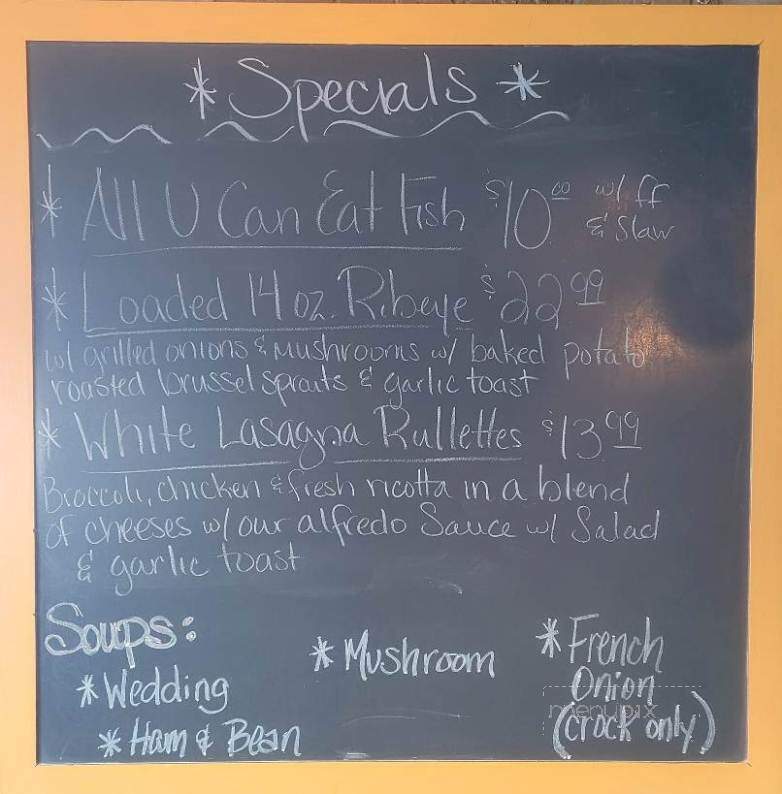 * Specials *
* All U Can Eat Fish $10.00 w/ ff
& Slaw
* Loaded 14 oz. Ribeye $22.99
w/ grilled onions & mushrooms w/ baked potato
roasted brussel sprouts & garlic toast
* White Lasagna Rullettes $13.99
Broccoli, chicken & fresh ricotta in a blend
of cheeses w/ our alfredo Sauce w/ Salad
& garlic toast
Soups:
* Wedding
* Ham & Bean
* Mushroom
* French
Onion
(crock only)
menupix